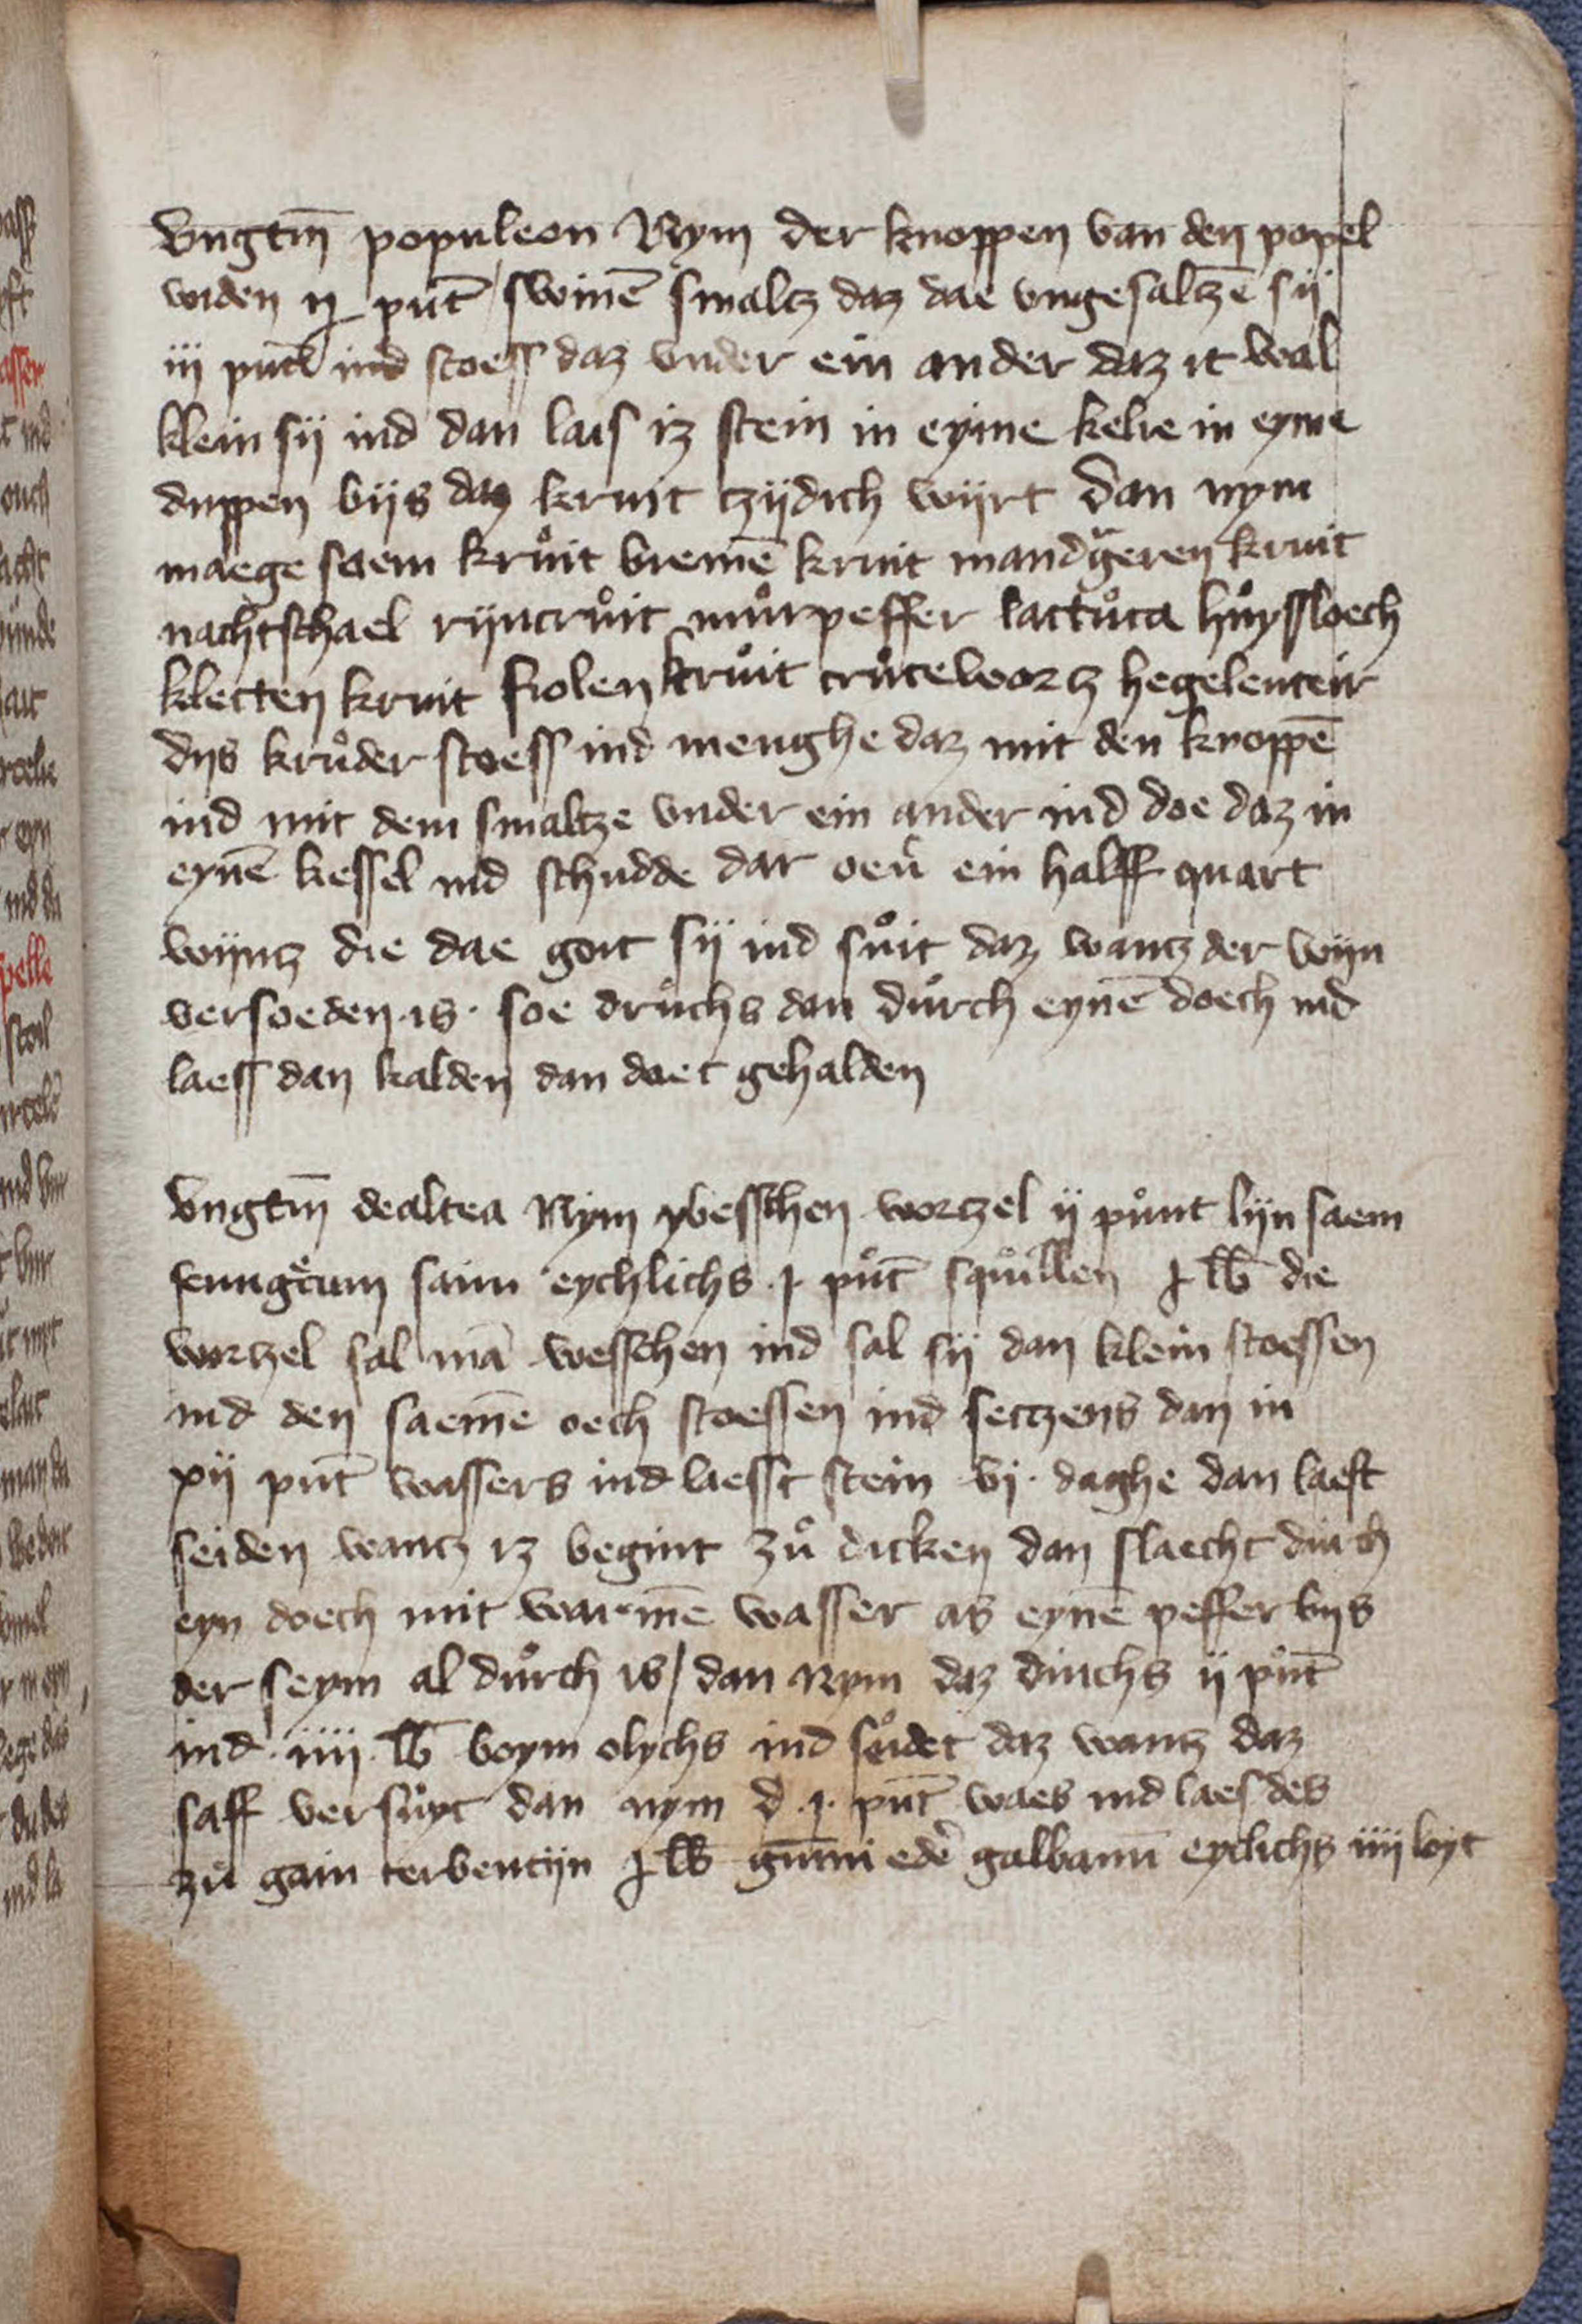 vngtm̄ populeon Nym der knoppen van den popel
widen ij pūt swinē smaltz daz dae vngesaltzē sij
iij pūt ind stoess daz vnder ein ander daz it wal
klein sij ind dan lais iz stein in eyme kelre in eyme
duppen bijs daz kruit tzijdich wijrt Dan nym
maege saem krůit bremē kruit mandgeren kruit
nachtschael rijncrůit můrpeffer lactůca hůyssloech
kletten kruit fiolen krůit crůcewortz hegelenteir
dijs krůder stoess ind menghe daz mit den knoppē
ind mit dem smaltze vnder ein ander ind doe daz in
eynē kessel ind schudde dar oeu̇ ein halff quart
wijntz die dae goit sij ind sůit daz wantz der wijn
versoeden is · soe druchs dan důrch eynē doech ind
laess dan kalden dan doet gehalden
vngtm̄ dealtea Nym ybesschen wortzel ij půnt lijn saem
fenugrcum saim eychlichs · j · pův̄t squillen j lb die
wortzel sal mā wesschen ind sal sij dan klein stoessen
ind den saemē oech stoessen ind setzens dan in
xij pūt wassers ind laesst stein vj · daghe dan laest
seiden wantz iz begint zů dicken dan slaecht durch
eyn doech mit warmē wasser as eynē peffer bijs
der seym al důrch is / dan Nym daz duichs ij půt
ind · iiij · lb boym olychs ind seidet daz wantz daz
saff versůyt dan nym d · j · pūt waes ind laes des
zů gain terbentijn j lb gūmi edē galbanū eyclichs iiij loyt